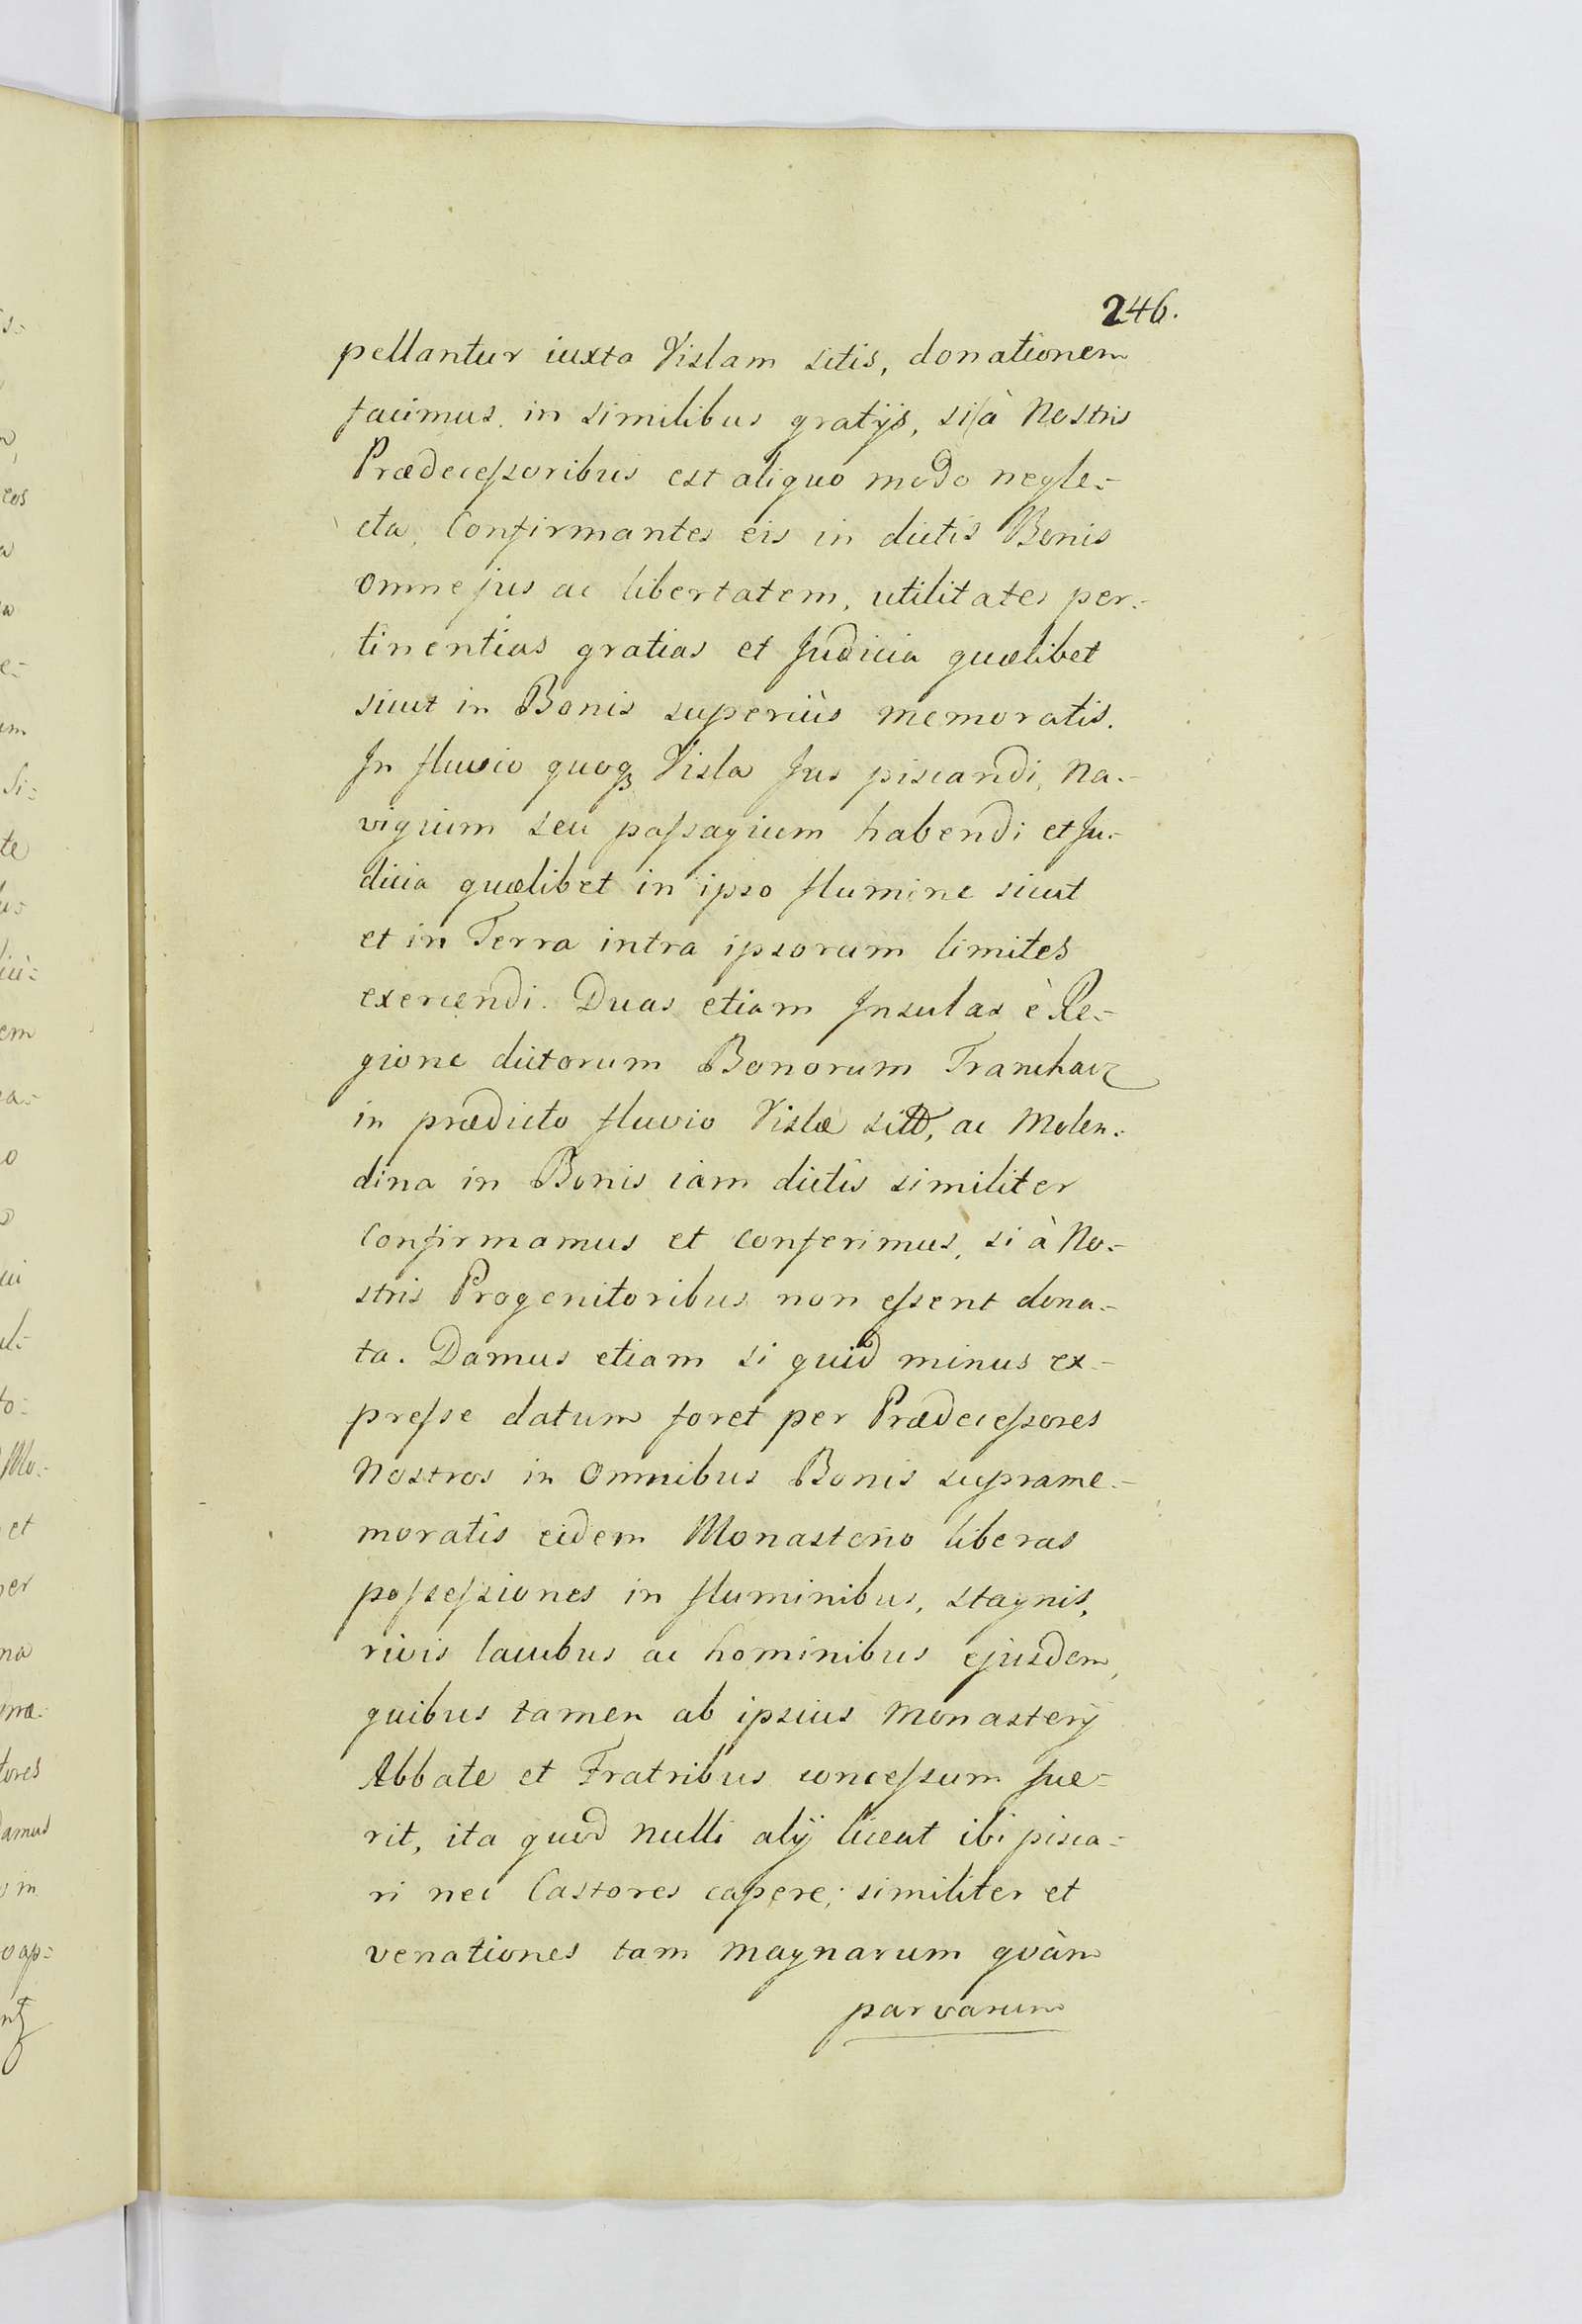 246.
pellantur iuxta Vislam sitis, donationem
facimus in similibus gratijs, si à Nostris
Prædeceſsoribus est aliquo modo negle:-
cta, Confirmantes eis in dictis Bonis
omne jus ac libertatem, utilitates per:-
tinentias gratias et Judicia quælibet
sicut in Bonis superiùs memoratis.
In fluvio quoqꝫ Visla Jus piscandi, Na:-
vigium seu paſsagium habendi et Ju:-
dicia quælibet in ipso flumine sicut
et in Terra intra ipsorum limites
exercendi. Duas etiam Insulas è Re:-
gione dictorum Bonorum Tranchavz
in prædicto fluvio Vislæ, ac Molen:-
dina in Bonis iam dictis similiter
Confirmamus et conferimus, si à No:-
stris Progenitoribus non eſsent dona:-
ta. Damus etiam si quid minus ex:-
preſse datum foret per Prædeceſsores
Nostros in Omnibus Bonis suprame:-
moratis eidem Monasterio liberas
poſseſsiones in fluminibus, stagnis,
rivis lacubus ac hominibus ejusdem,
quibus tamen ab ipsius Monasterij
Abbate et Fratribus conceſsum fue:-
rit, ita quod nulli alij liceat ibi pisca:-
ri nec Castores capere; similiter et
venationes tam magnarum quàm
parvarum